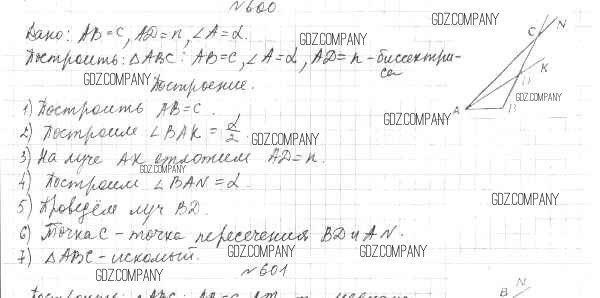 №600
Дано: AB=c, AD=n, ∠A=α.
Построить: △ABC: AB=c, ∠A=α, AD=n-биссектри-
са
Построение.
1) Построить AB=c.
2) Построим ∠BAK = α/2.
3) На луче AK отложим AD=n.
4) Построим ∠BAN=α.
5) Проведём луч BD.
6) Точка C - точка пересечения BD и AN.
7) △ABC-искомый.
№601
GDZ.COMPANY
GDZ.COMPANY
GDZ.COMPANY
GDZ.COMPANY
GDZ.COMPANY
GDZ.COMPANY
GDZ.COMPANY
GDZ.COMPANY
GDZ.COMPANY
GDZ.COMPANY
GDZ.COMPANY
C
N
K
D
A
B
N
B